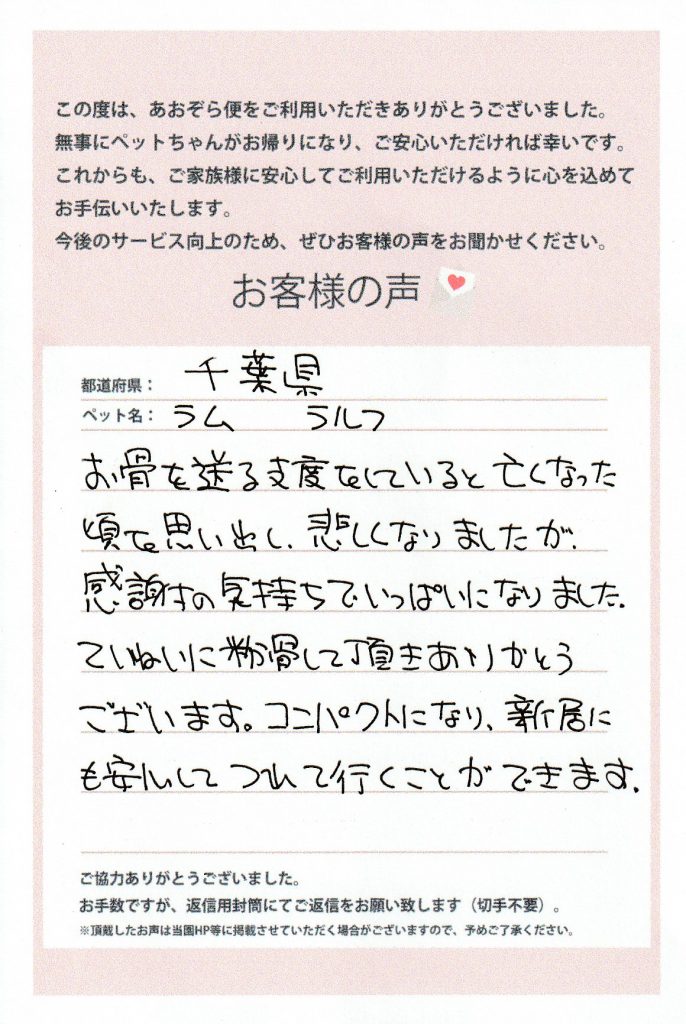 この度は、あおぞら便をご利用いただきありがとうございました。
無事にペットちゃんがお帰りになり、ご安心いただければ幸いです。
これからも、ご家族様に安心してご利用いただけるように心を込めて
お手伝いいたします。
今後のサービス向上のため、ぜひお客様の声をお聞かせください。
お客様の声
都道府県： 千葉県
ペット名： ラム ラルフ
お骨を送る支度をしていると亡くなった
頃を思い出し、悲しくなりましたが、
感謝の気持ちでいっぱいになりました。
ていねいに粉骨して頂きありがとう
ございます。コンパクトになり、新居に
も安心してつれて行くことができます。
ご協力ありがとうございました。
お手数ですが、返信用封筒にてご返信をお願い致します（切手不要）。
※頂戴したお声は当園HP等に掲載させていただく場合がございますので、予めご了承ください。